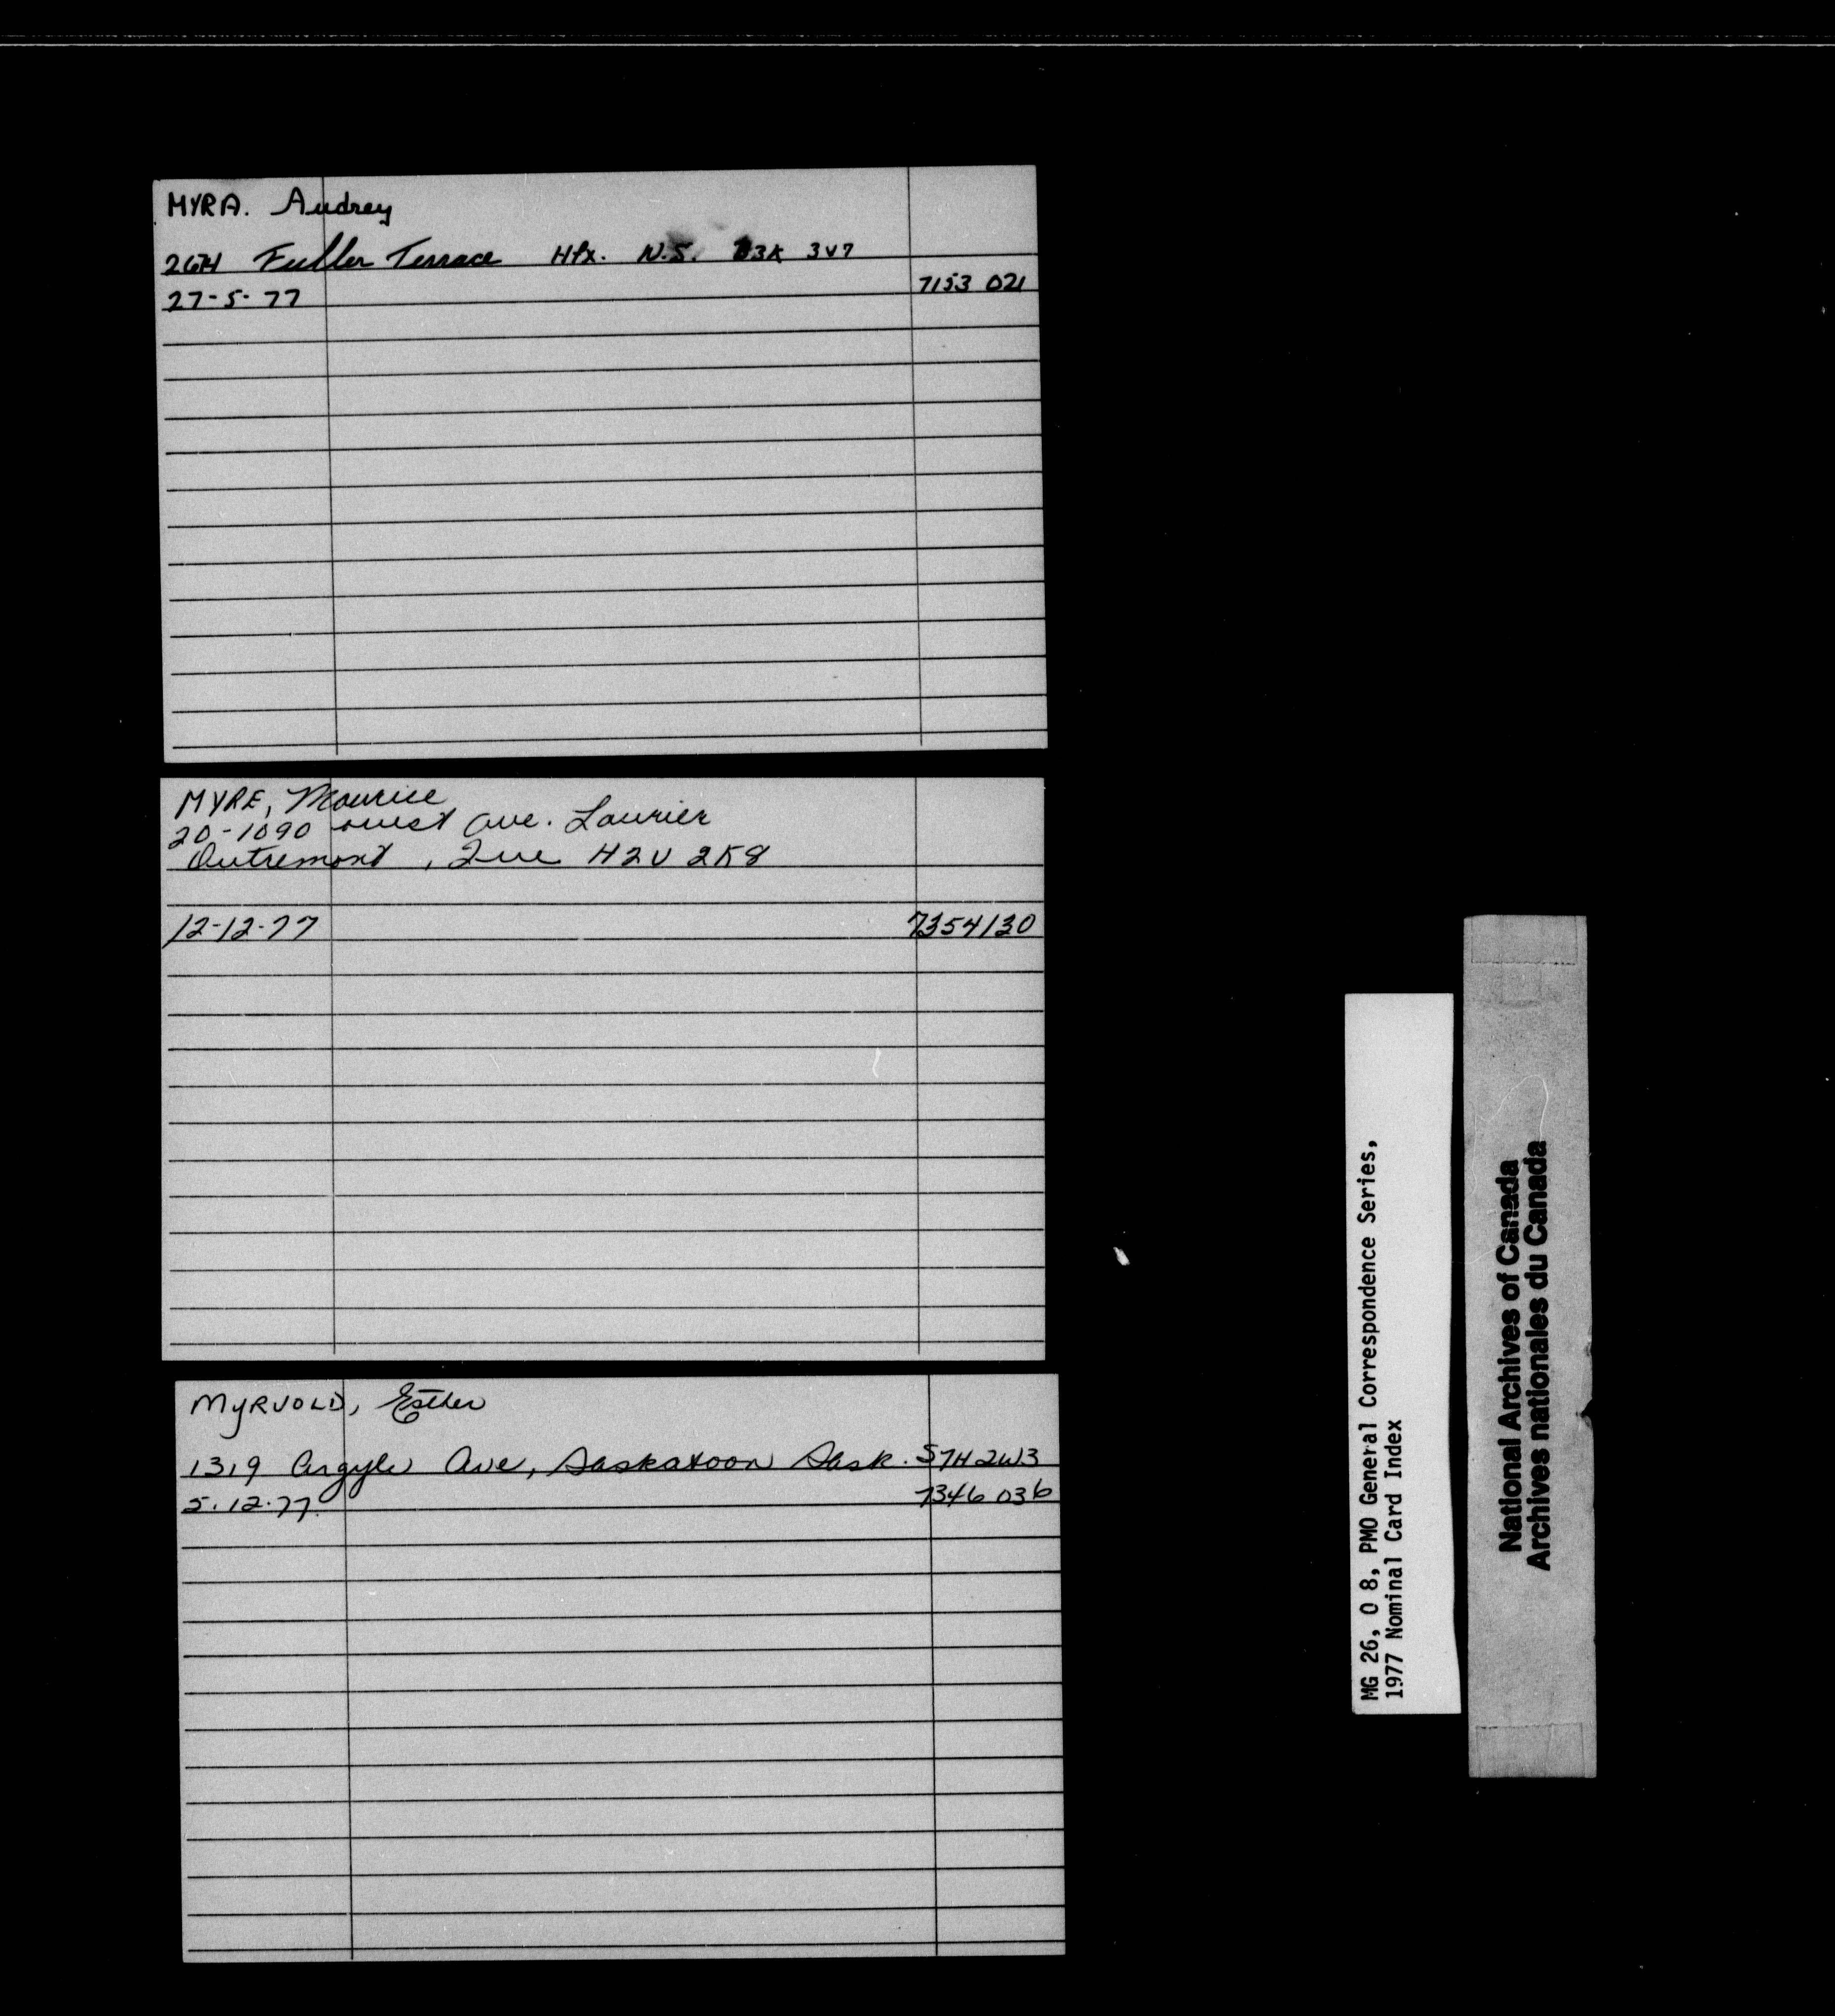 MYRA. Audrey
2674 Fuller Terrace Hfx. N.S. B3K 3V7
27-5-77 7153 021
MYRE, Maurice
20-1090 ouest ave. Laurier
Outremont, Que H2V 2K8
12-12-77 7354130
MYRVOLD, Esther
1319 Argyle Ave, Saskatoon Sask. S7H2W3
5.12.77. 7346 036
MG 26, O 8, PMO General Correspondence Series,
1977 Nominal Card Index
National Archives of Canada
Archives nationales du Canada